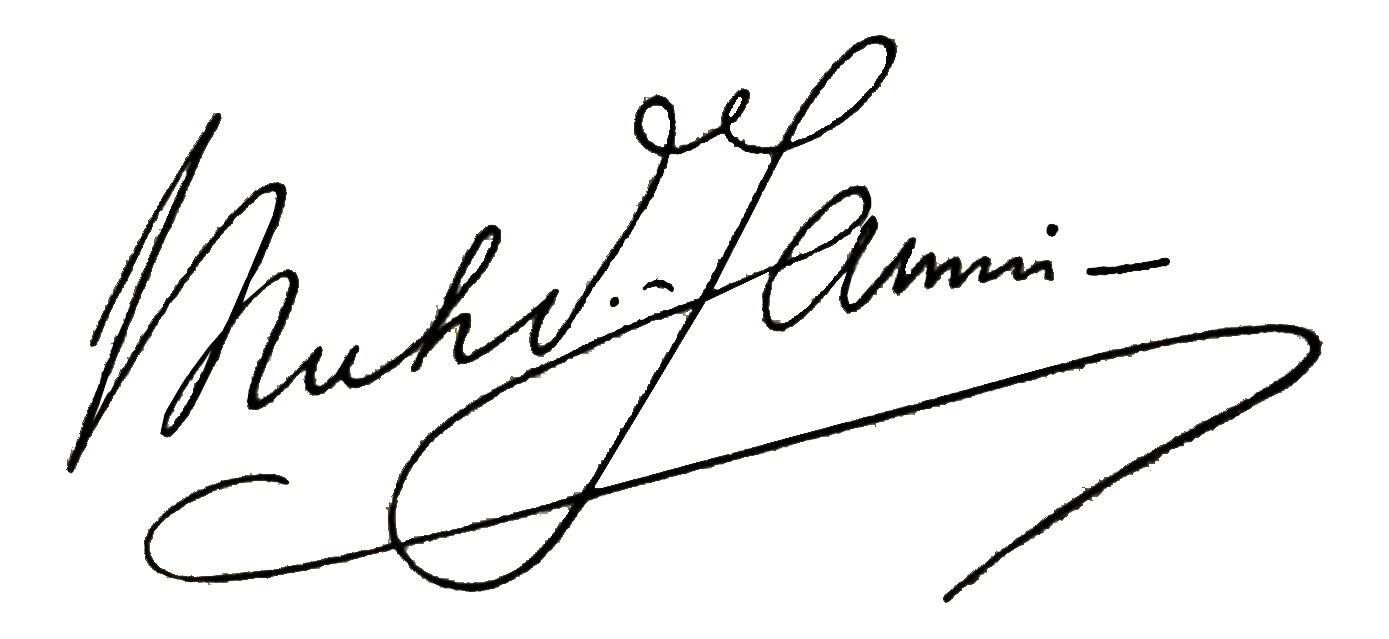 Muhd. Yamin